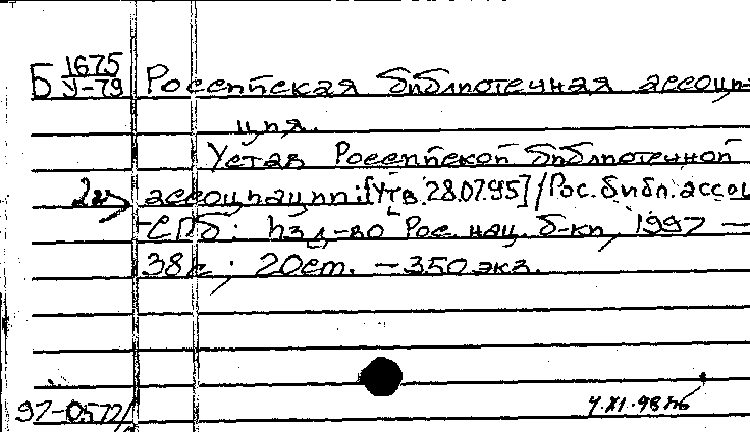 Б 1675 Российская библиотечная ассоци-
У-79
ция.
Устав Российской библиотечной
2эк ассоциации: [Утв. 28.07.95] / Рос. библ. ассоц
- СПб: Изд-во Рос. нац. б-ки, 1997 -
38с; 20см. - 350 экз.
97-0577/
4.XI.98